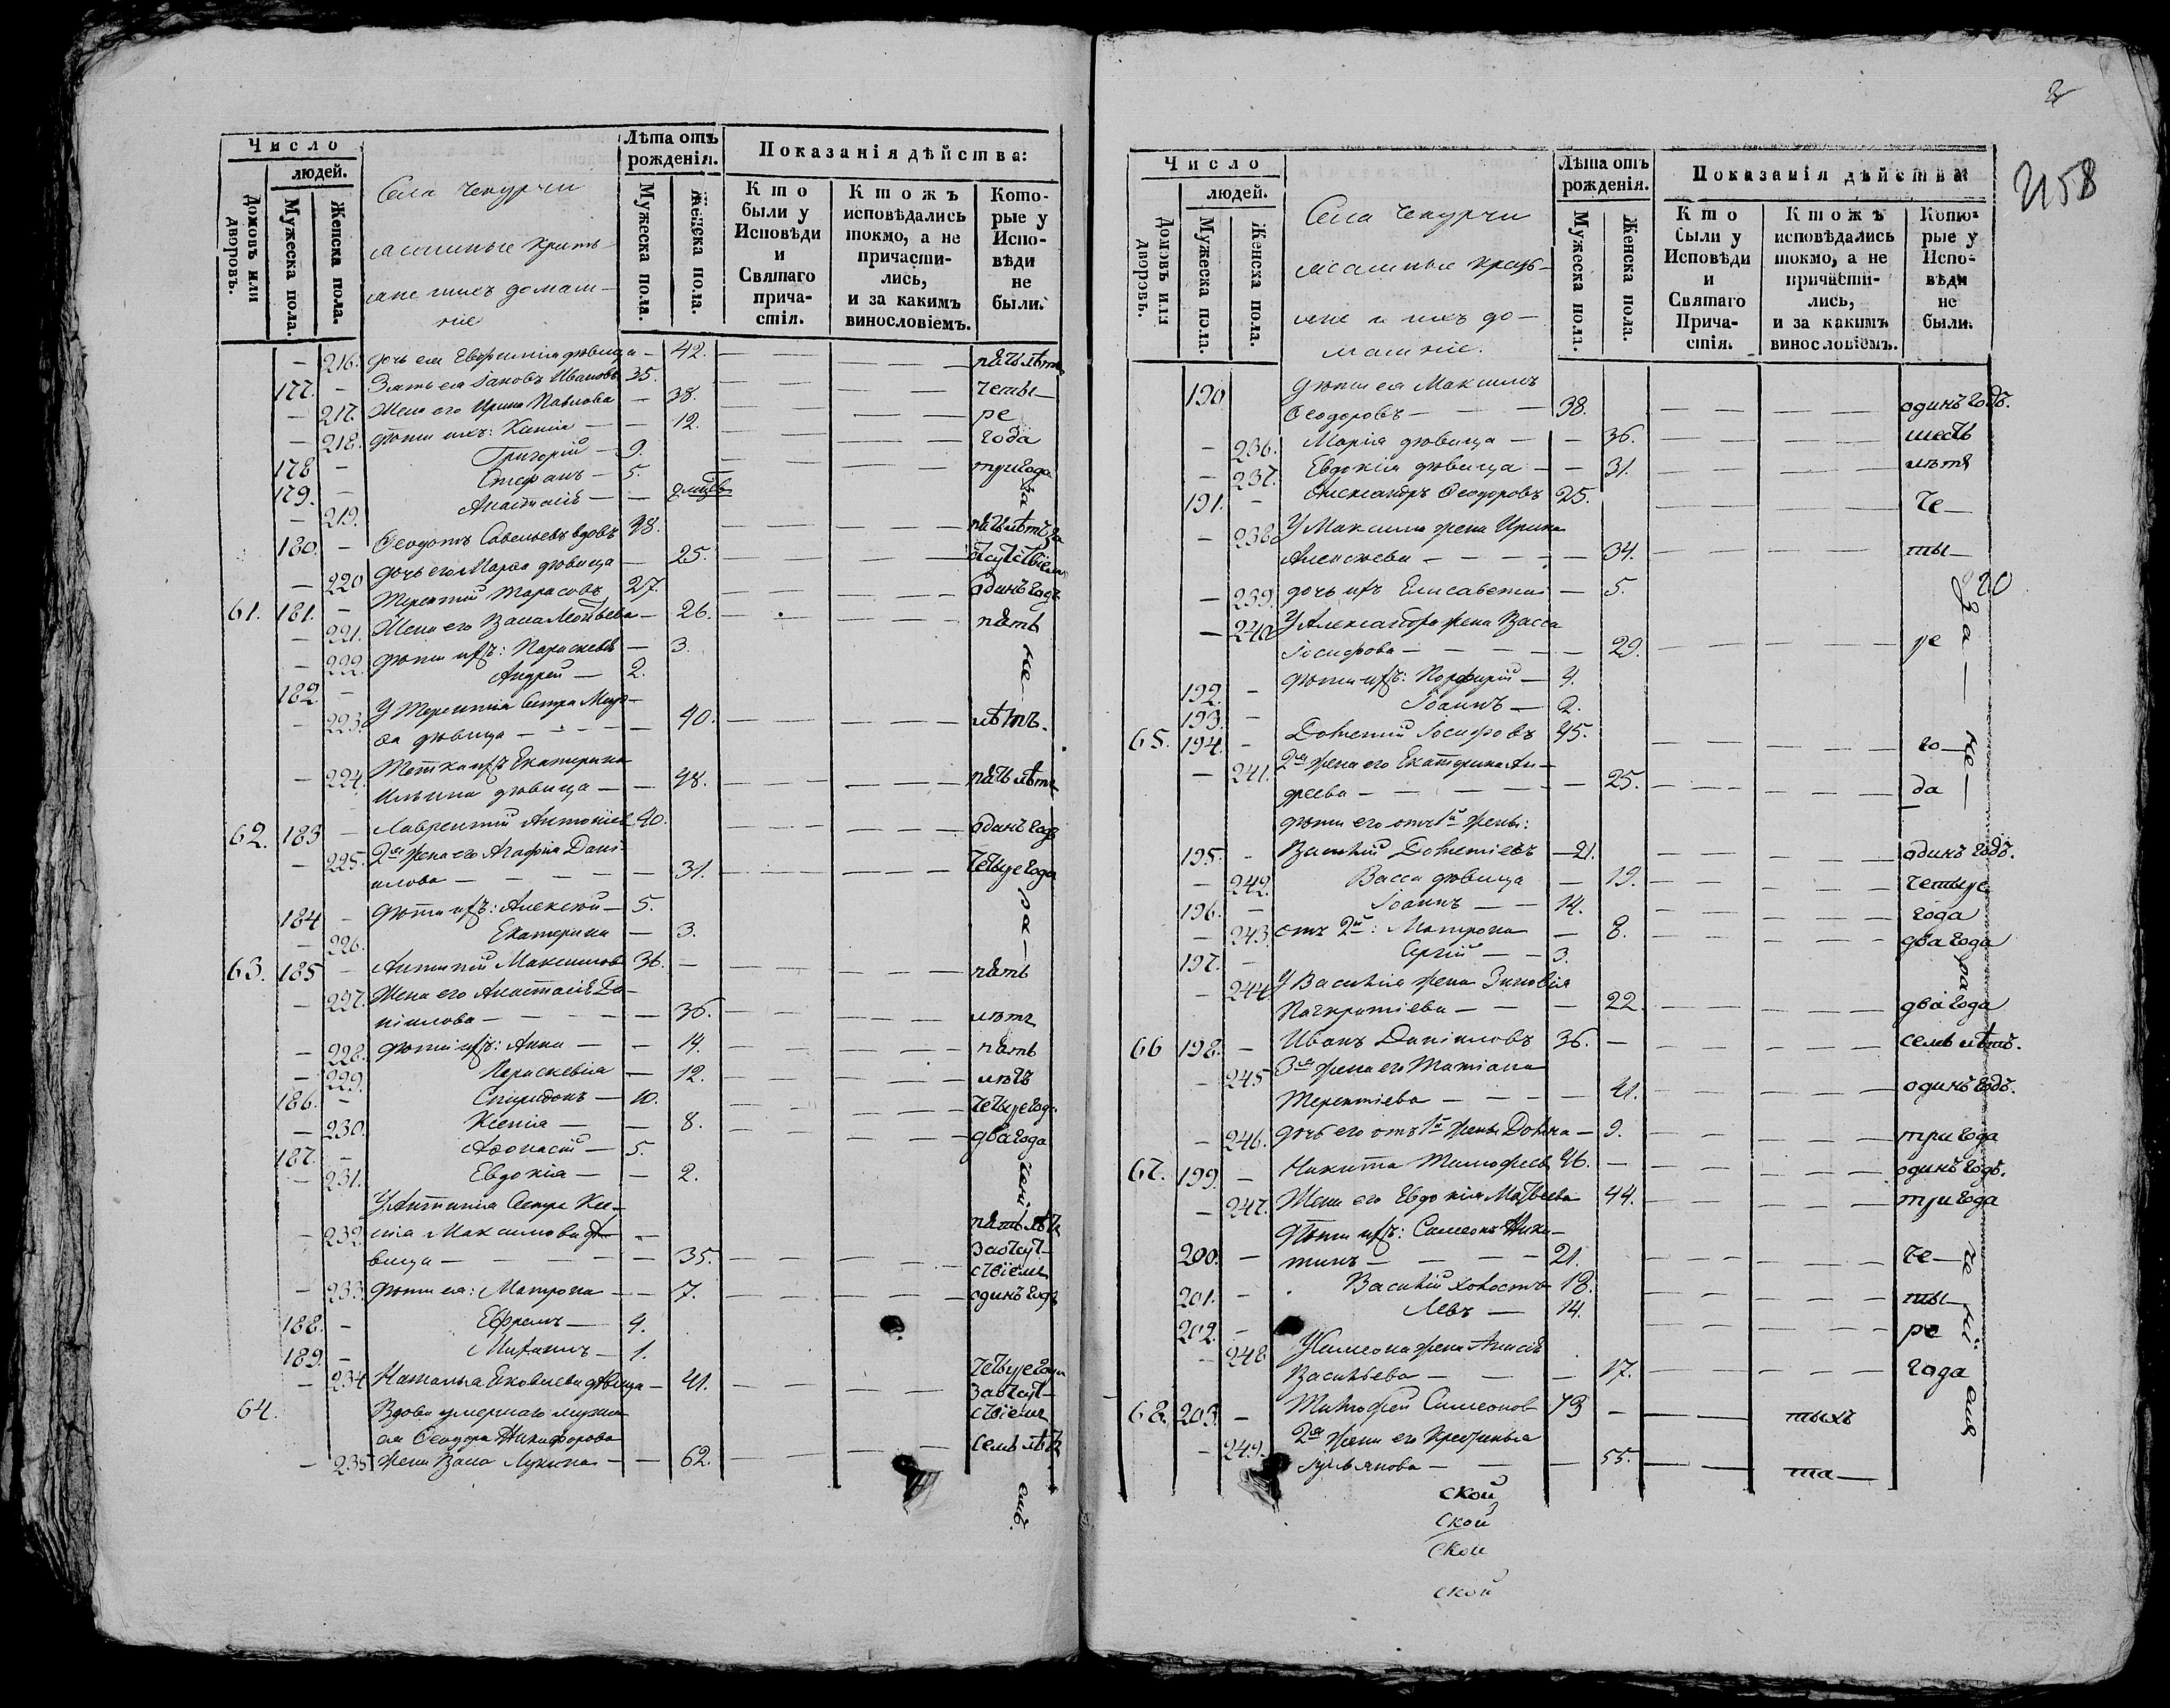 Число
людей.
Домовъ или дворовъ.
Мужеска пола.
Женска пола.
Села Чекурчи
ясашные крестъ-
яне и ихъ домаш-
ніе
Лѣта отъ рожденія.
Мужеска пола.
Женска пола.
Показанія дѣйства:
Кто были у Исповѣди и Святаго прича-стія.
Ктожъ исповѣдались токмо, а не причасти-лись, и за какимъ винословіемъ.
Кото-рые у Испо-вѣди не были.
— 216. дочь ея Евфимія дѣвица — 42. — — — — пять лѣтъ
177. — Зять ея Іаковъ Ивановъ 35. — — — — четы—
— 217. Жена его Ирина Павлова — 38. — — — — ре
— 218. Дѣти ихъ: — — 12. — — — — года
178 — Григорій — 9. — — — — три года
179. — Стефанъ — 5.
— 219. Анастасія — —
180. — Ѳеодотъ Савельевъ вдовъ 48. — — — — пять лѣтъ за
— 220 дочь его Марѳа дѣвица — 25. — — — — отсутствіем
61. 181. — Терентій Тарасовъ 27. — — — — одинъ годъ
— 221. Жена его — 26. — — — — пять
— 222. дѣти ихъ: Параскева — 3.
182 — Андрей — 2.
— 223. У Терентія сестра Мар-
ѳа дѣвица — — — 40. — — — — лѣтъ.
— 224. Тетка ихъ Екатерина
Ильина дѣвица — — 48. — — — — пять лѣтъ
62. 183 — Лаврентій Антоніев 40. — — — — одинъ годъ
— 225. 2я жена его Агафія Дані-
илова — — — — 31. — — — — четыре года
184 — Дѣти ихъ: Алексѣй — 5.
— 226. Екатерина — 3.
63. 185 — Антипій Максимовъ 36. — — — — пять
— 227. Жена его Анастасія Да-
ніилова — — — — 36. — — — — лѣтъ
— 228. дѣти ихъ: Анна — — 14. — — — — пять
— 229. Параскевія — 12. — — — — лѣтъ
186. — Спиридонъ — 10. — — — — четыре год.
— 230. Ксенія — — 8. — — — — два года
187. — Аѳонасій — 5.
— 231. Евдокія — — 2.
У Антипія Сестра Ксе-
— 232. нія Максимова дѣ-
вица — — — — 35. — — — — пять лѣтъ за отсут-ствіемъ
— 233. дѣти ея: Матрона — — 7. — — — — одинъ годъ
188. — Ефремъ — 4.
189. — — 1.
— 234 Наталья Яковлева дѣвица — 41. — — — — четыре года за отсут-ствіемъ
64. Вдова умершаго мужа
ея Ѳеодора Никифорова
— 235. жена Васса Лукина — — 62. — — — — семь лѣтъ
2
2158
Число
людей.
Домовъ или дворовъ.
Мужеска пола.
Женска пола.
Села Чекурчи
ясашные кресть-
яне и ихъ до-
машніе.
Лѣта отъ рожденія.
Мужеска пола.
Женска пола.
Показанія дѣйства
Кто были у Исповѣди и Святаго Прича-стія.
Ктожъ исповѣдались токмо, а не причасти-лись, и за какимъ винословіемъ.
Кото-рые у Испо-вѣди не были.
190 Дѣти ея Максимъ
Ѳеодоровъ — — — 38. — — — — одинъ годъ.
— 236. Марія дѣвица — — 36. — — — — шесть
— 237. Евдокія дѣвица — — 31. — — — — лѣтъ
191. — Александръ Ѳеодоровъ 25. — — — — че—
— 238 У Максима жена Ирина
Алексѣева — — — — 34. — — — — ты—
20
— 239. дочь ихъ Елисавета — 5.
— 240. У Александра жена Васса
Іосифова — — — — 29. — — — — ре
192. — Дѣти ихъ: Порфирій — 4.
193. — Іоаннъ — 2.
65. 194. — Дометій Іосифовъ 45. — — — — го—
— 241. 2я жена его Екатерина Ан-
дреева — — — — 25. — — — — да
дѣти его отъ 1й жены:
195. — Василій Дометіевъ — 21. — — — — одинъ годъ.
— 242. Васса дѣвица — 19. — — — — четыре
196. — Іоаннъ — — 14. — — — — года
— 243. отъ 2й: Матрона — 8. — — — — два года
197. — Сергій — — 3.
— 244 У Василія жена Зиновія
Панкратіева — — — 22. — — — — два года
66 198. — Иванъ Даніиловъ 36. — — — — семь лѣтъ.
— 245 3я жена его Татіана
Терентіева — — — — 41. — — — — одинъ годъ.
— 246. дочь его отъ 1й жены Домна — 9. — — — — три года
67. 199. — Никита Тимофеевъ 46. — — — — одинъ годъ.
— 247. Жена его Евдокія Матвѣева 44. — — — — три года
Дѣти ихъ: Симеонъ Ники-
200. — тинъ — — — 21. — — — — че—
201. — Василій холостъ 18. — — — — ты—
202. — Левъ — 14. — — — — ре
— 248 У Симеона жена Анисія
Васильева — — — 17. — — — — года
68. 203. — Тимофей Симеоновъ 73 — — тыхъ
— 249. 2я жена его
— — — 55. — — та—
ской
ской
ской
ской